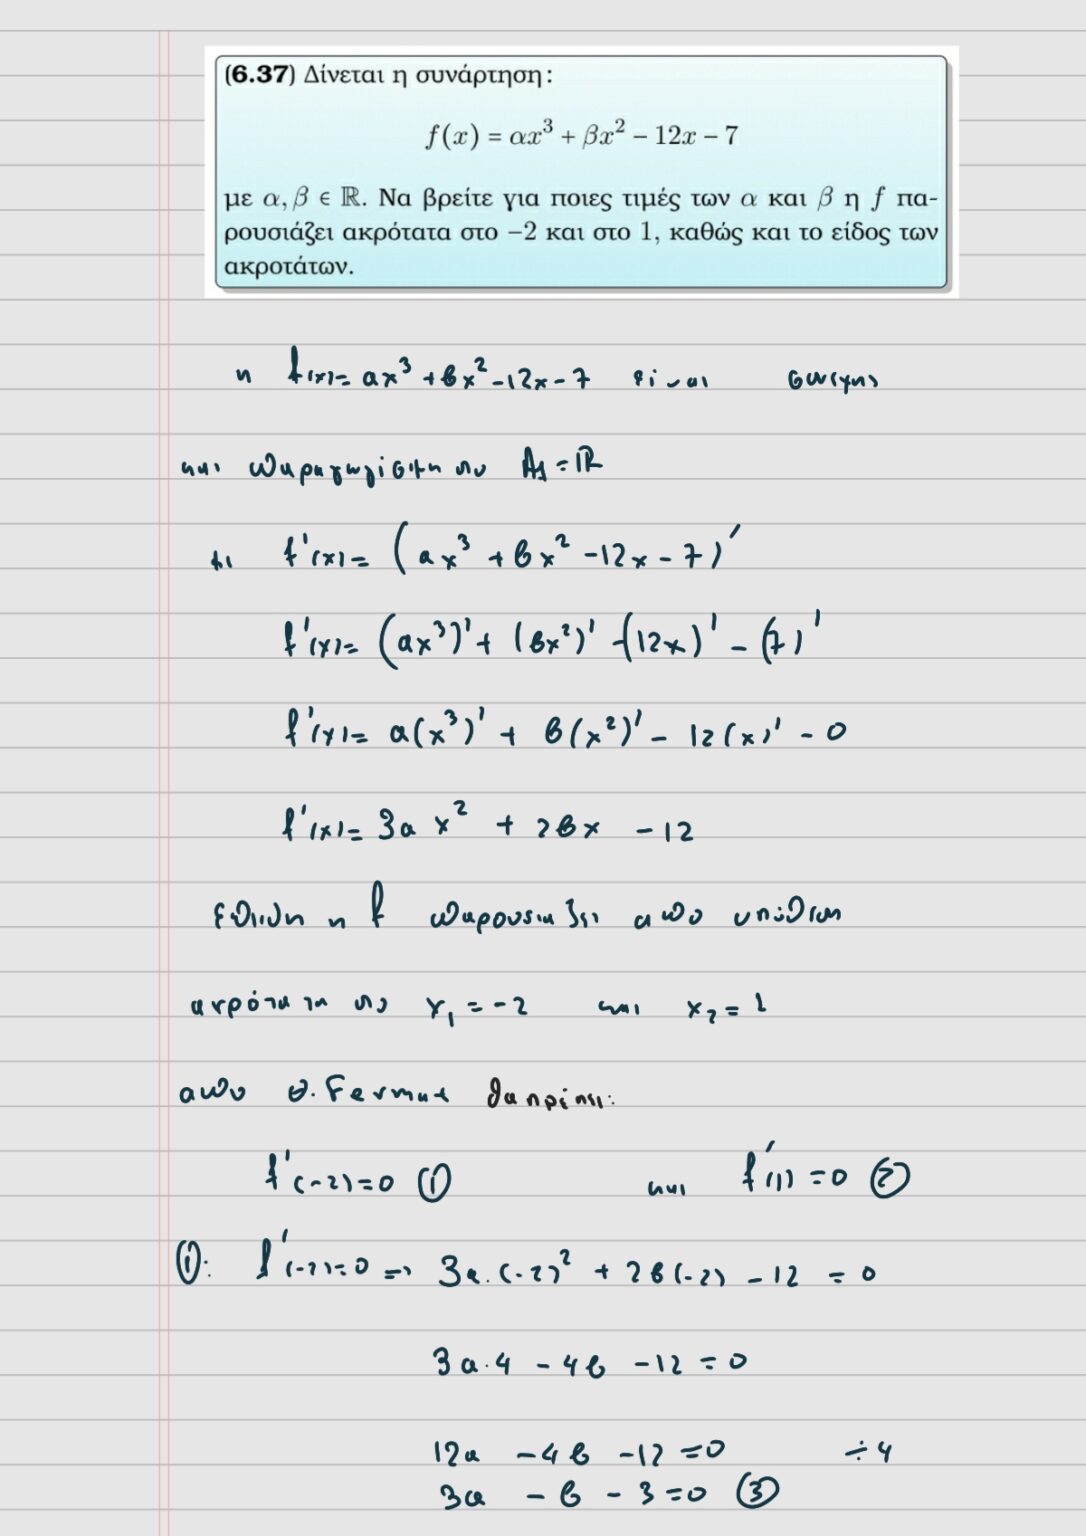 (6.37) Δίνεται η συνάρτηση:
f(x) = αx³ + βx² − 12x − 7
με α, β ∈ ℝ. Να βρείτε για ποιες τιμές των α και β η f πα-
ρουσιάζει ακρότατα στο −2 και στο 1, καθώς και το είδος των
ακροτάτων.
η f(x)= αx³ + βx² - 12x - 7 είναι συνεχης
και παραγωγίσιμη στο Af = ℝ
με f'(x)= (αx³ + βx² - 12x - 7)'
f'(x)= (αx³)' + (βx²)' - (12x)' - (7)'
f'(x)= α(x³)' + β(x²)' - 12(x)' - 0
f'(x)= 3α x² + 2βx - 12
Επειδη η f παρουσιαζει απο υπόθεση
ακρότατα στο x₁ = -2 και x₂ = 1
απο Θ. Fermat θα πρέπει:
f'(-2)=0 ① και f'(1)=0 ②
①: f'(-2)=0 => 3α·(-2)² + 2β(-2) - 12 = 0
3α·4 - 4β - 12 = 0
12α - 4β - 12 = 0 ÷4
3α - β - 3 = 0 ③